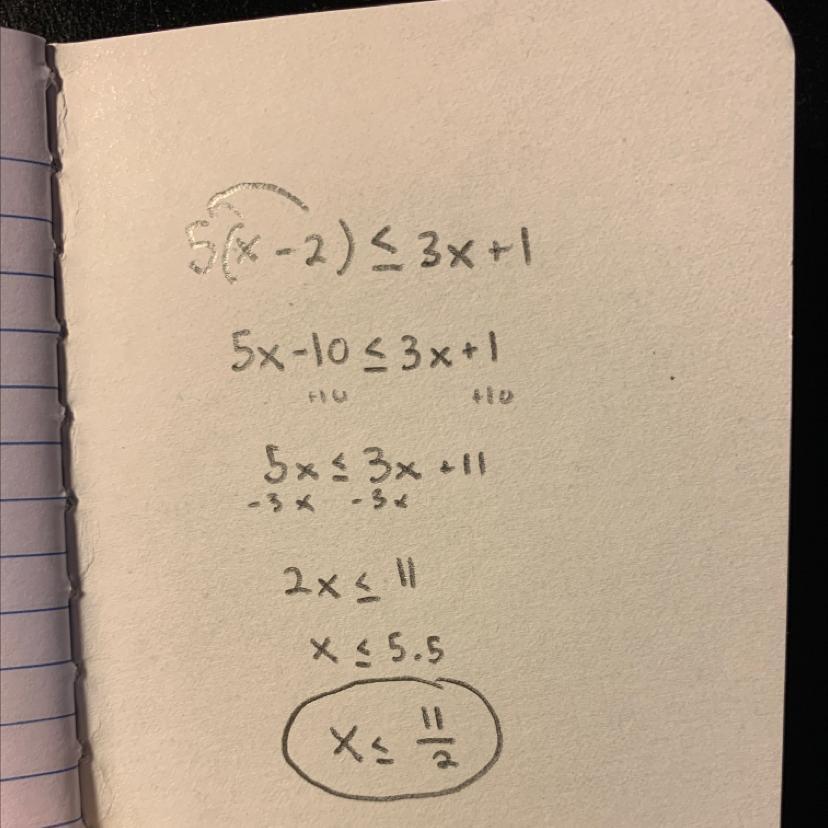 5(x-2) ≤ 3x+1
5x-10 ≤ 3x+1
+10 +10
5x ≤ 3x +11
-3x -3x
2x ≤ 11
x ≤ 5.5
x ≤ 11/2